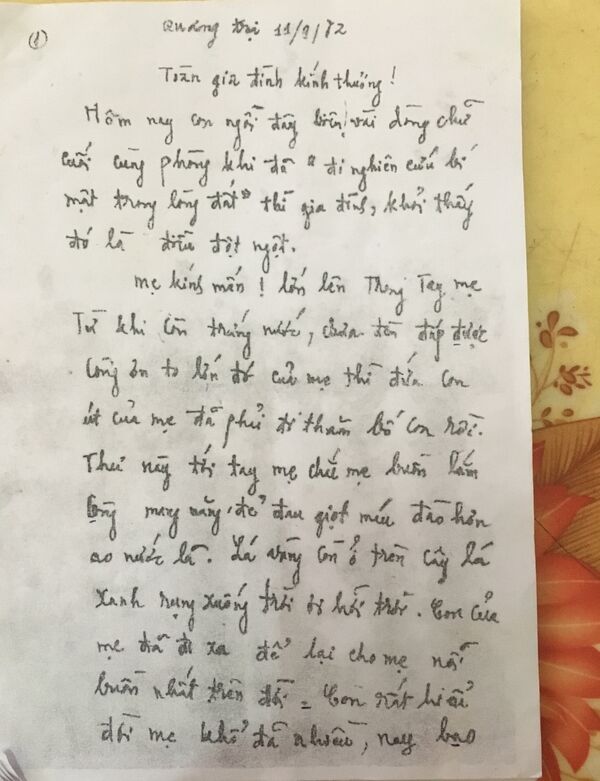 (1)
Quảng Trị 11/9/72
Toàn gia đình kính thương!
Hôm nay con ngồi đây biên vài dòng chữ
cuối cùng phòng khi đã "đi nghiên cứu bí
mật trong lòng đất" thì gia đình, khỏi thấy
đó là điều đột ngột.
Mẹ kính mến! lớn lên Trong Tay mẹ
Từ khi còn trứng nước, chưa đền đáp được
công ơn to lớn đó của mẹ thì đứa con
út của mẹ đã phải đi thăm bố con rồi.
Thư này tới tay mẹ chắc mẹ buồn lắm
lòng mang nặng đẻ đau giọt máu đào hơn
ao nước lã. Lá vàng còn ở trên cây lá
xanh rụng xuống trời ơi hỡi trời. Con của
mẹ đã đi xa để lại cho mẹ nỗi
buồn nhất trên đời = Con rất hiểu
đời mẹ khổ đã nhiều, nay bao